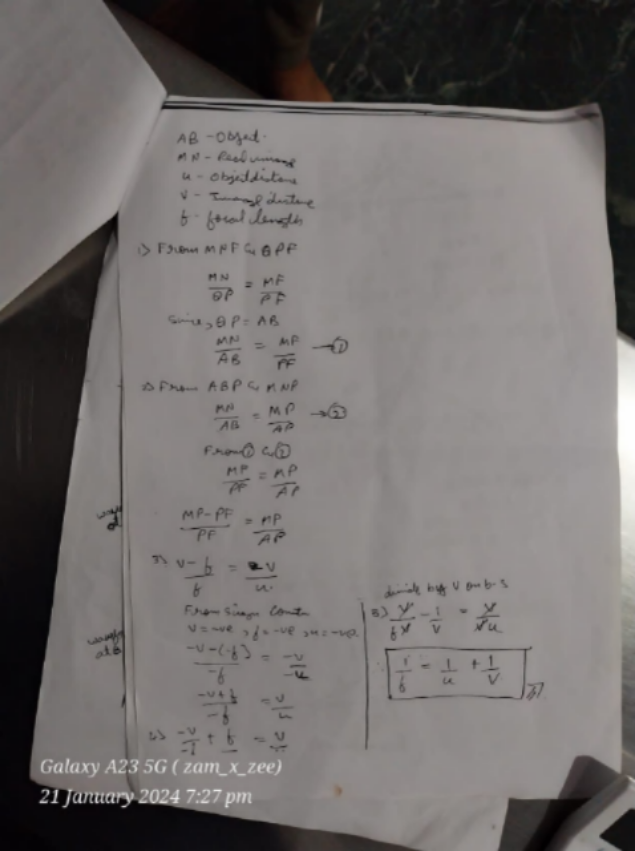 AB - Object.
MN - Real image
u - Object distance
v - Image distance
f - focal length
1) From MNF & QPF
MN/QP = MF/PF
Since, QP = AB
MN/AB = MF/PF → ①
2) From ABP & MNP
MN/AB = MP/AP → ②
From ① & ②
MF/PF = MP/AP
MP-PF/PF = MP/AP
v-f/f = v/u
From sign
v = -ve, f = -ve, u = -ve
-v-(-f)/-f = -v/-u
-v+f/-f = v/u
-v/-f + f/ = v/
divide by v on b.s
v/fv - 1/v = v/vu
1/f = 1/u + 1/v
Galaxy A23 5G ( zam_x_zee)
21 January 2024 7:27 pm